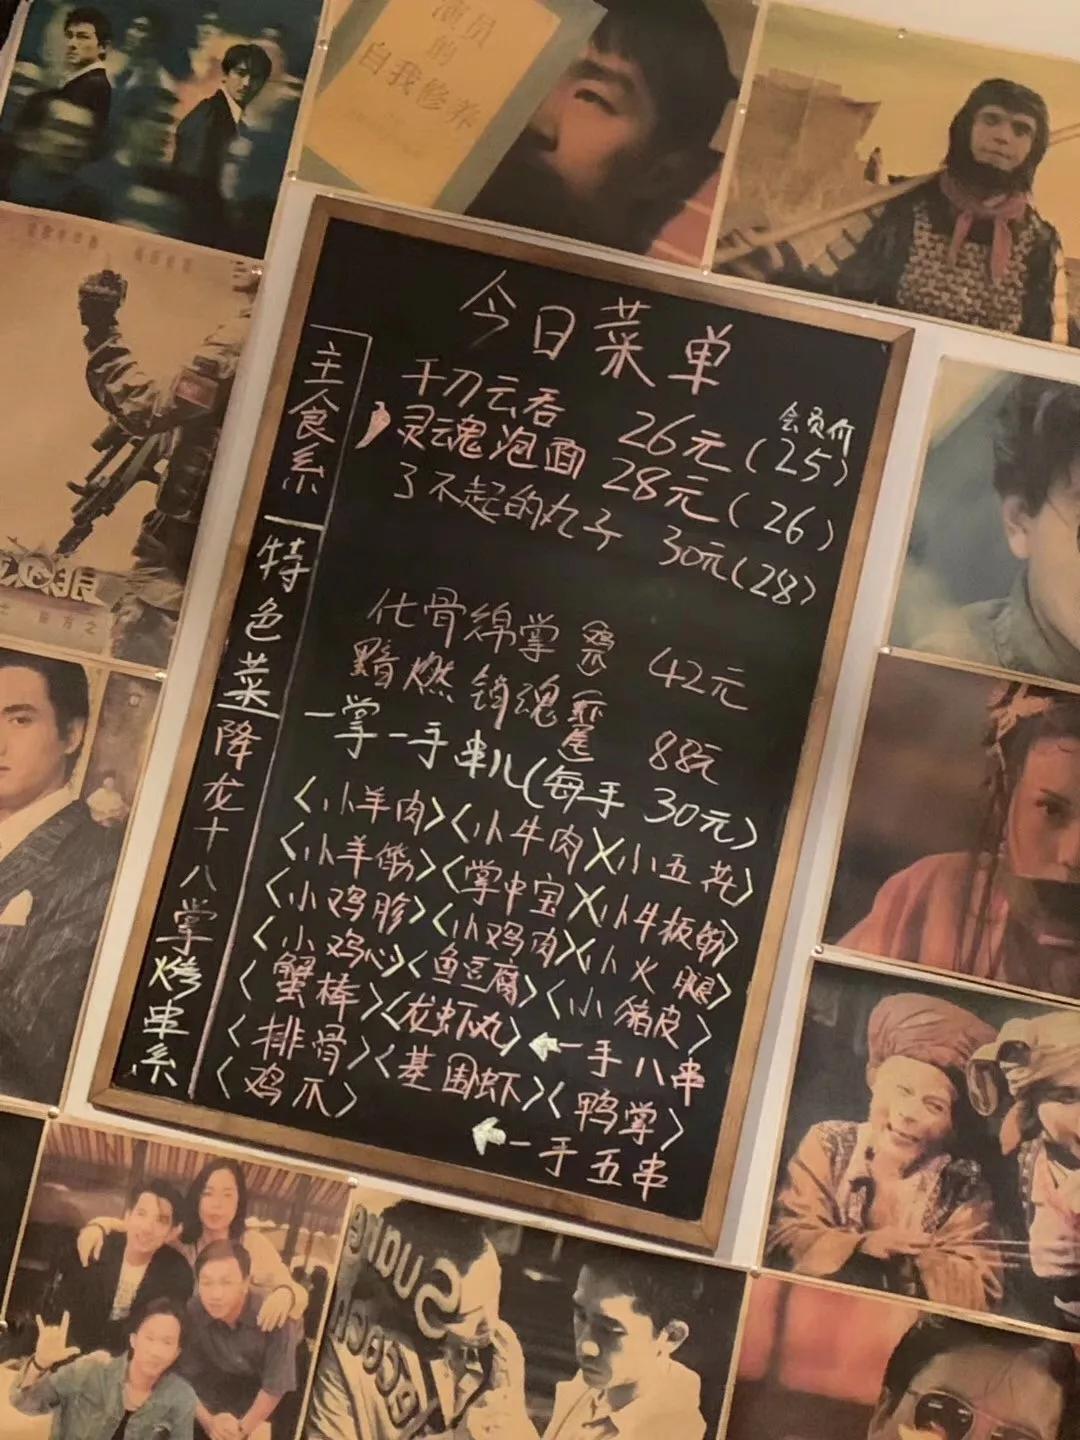 演员
的
自我修养
今日菜单
会员价
主食系
千刀云吞 26元(25)
灵魂泡面 28元(26)
了不起的丸子 30元(28)
特色菜
化骨绵掌 42元
黯燃销魂 88元
降龙十八掌烤串系
一掌一手串儿(每手30元)
<小羊肉><小牛肉><小五花>
<小羊馓><掌中宝><小牛板筋>
<小鸡胗><小鸡肉><小火腿>
<小鸡心><鱼豆腐><小猪皮>
<蟹棒><龙虾丸>←一手八串
<排骨><基围虾><鸭掌>
<鸡爪>
←一手五串